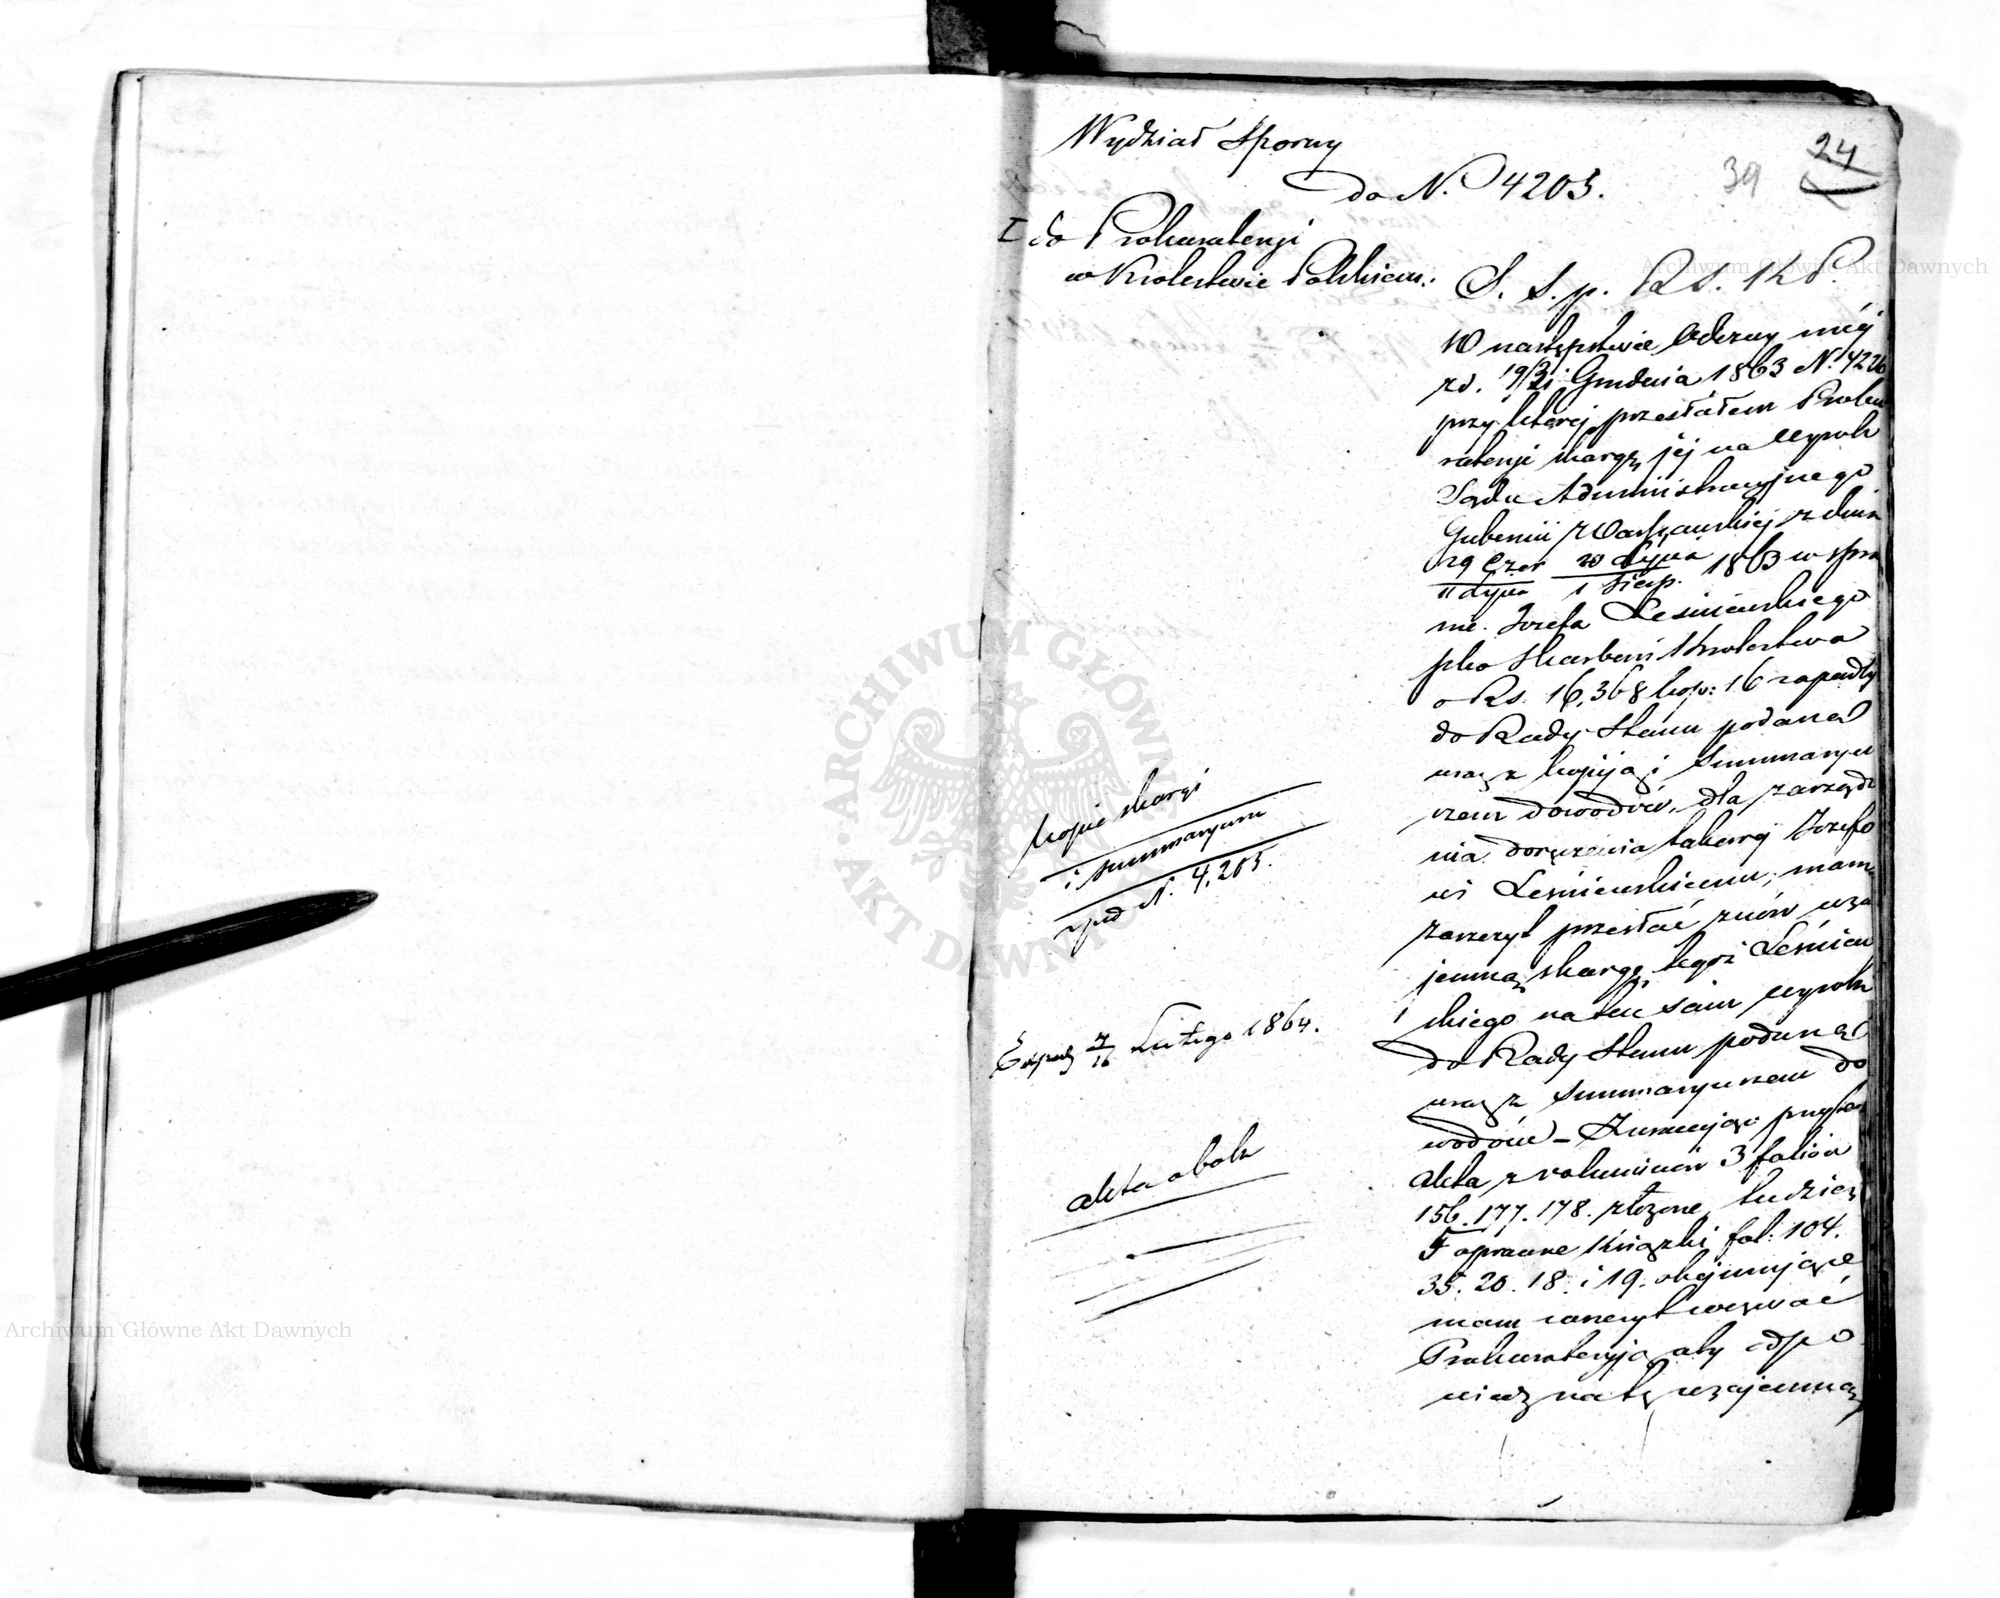 Wydział Sporny
do N. 4205.
39
24
I do Prokuratoryi
w Krolestwie Polskiem.
S. S. p. RS. KP.
W następstwie Odezwy mej
z d. 19/31 Grudnia 1863 N. 4226
przy ktorej przesłałem Proku
ratoryi skargę jej na Wyrok
Sądu Administracyjnego
Gubernii Warszawskiej z dnia
29 Czer 20 Lipca 1863 w spra
11 Lipca 1 Sierp.
wie Jozefa Leśniewskiego
pko Skarbowi Krolestwa
o Rs. 16,368 kop: 16 zapadły
do Rady Stanu podaną
wraz z kopiją i summaryu
szem dowodów, dla zarządze
nia doręczenia takowej Jozefo
wi Leśniewskiemu, mam
zaszczyt przesłać znów wza
jemną skargę tegoż Leśniew
skiego na ten sam Wyrok
do Rady Stanu podaną
wraz z summaryuszem do
wodów –
akta z voluminów 3 foliów
156. 177. 178. złożone, tudzież
5 oprawne Książki fol: 104.
35. 20. 18. i 19. obejmujące
mam zaszczyt wezwać
Prokuratoryją aby odpo
wiedz na tę wzajemną
kopie skargi
i summaryum
pod N. 4,205.
Exped 4/16 Lutego 1864.
akta obok
ARCHIWUM GŁÓWNE AKT DAWNYCH
Archiwum Główne Akt Dawnych
Archiwum Główne Akt Dawnych